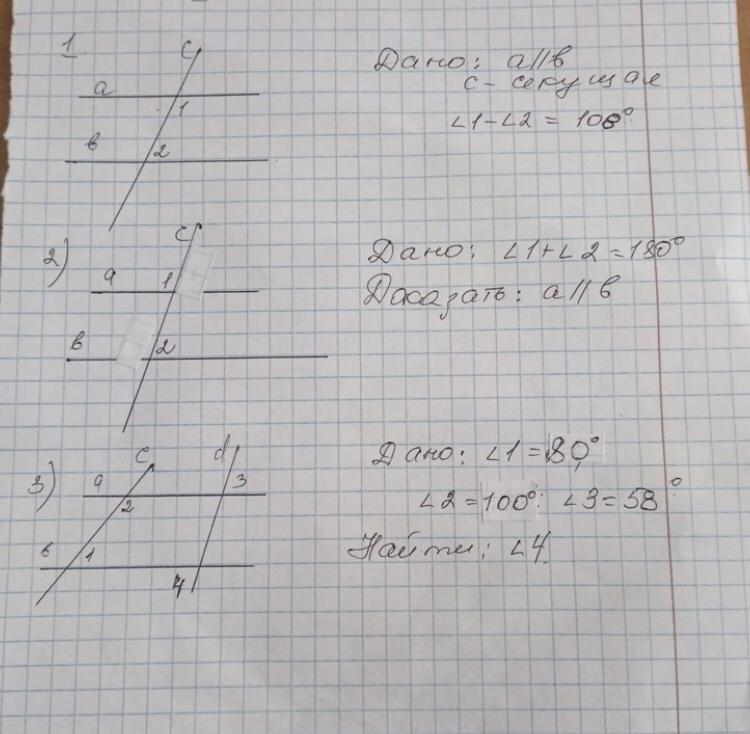 1.
c
a
1
b
2
Дано: a∥b
c - секущая
∠1-∠2 =
2)
c
a
1
b
2
Дано: ∠1+∠2=180°
Доказать: a∥b
3)
c
d
a
2
3
b
1
4
Дано: ∠1=80°
∠2=100°: ∠3=58°
Найти: ∠4.